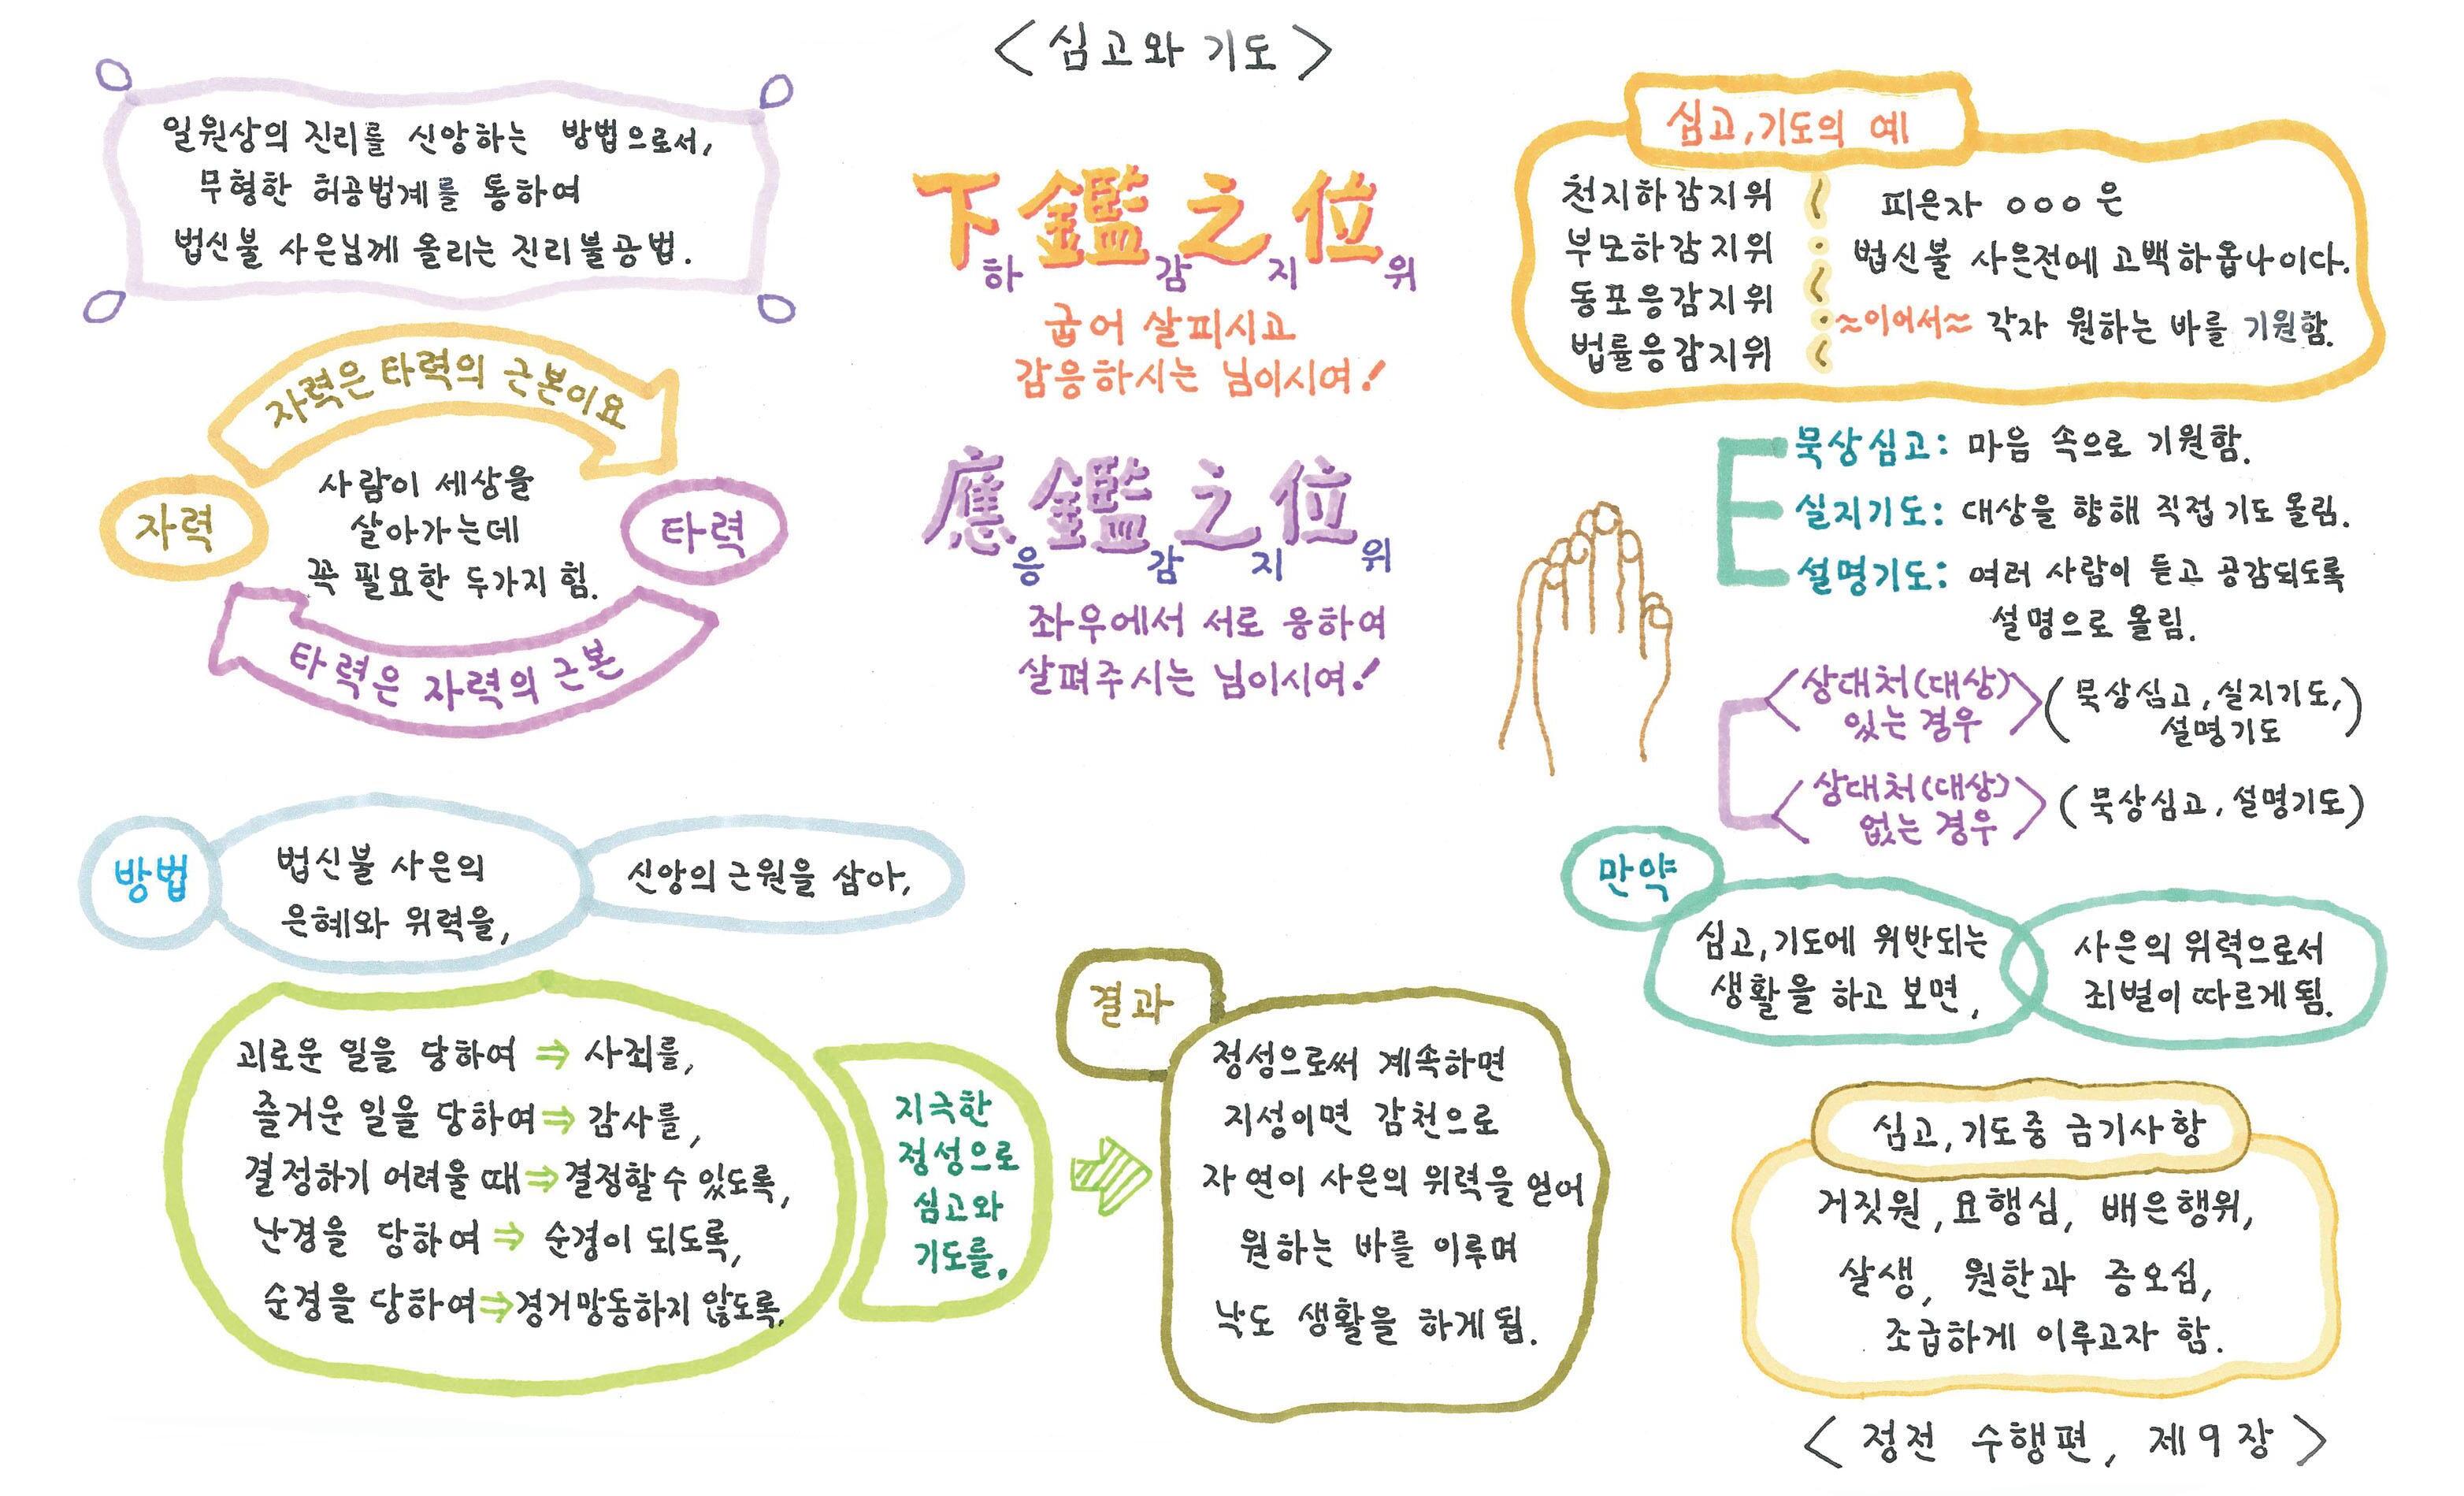 <심고와 기도>
일원상의 진리를 신앙하는 방법으로서,
무형한 허공법계를 통하여
법신불 사은님께 올리는 진리불공법.
자력은 타력의 근본이요
자력
사람이 세상을
살아가는데
꼭 필요한 두가지 힘.
타력
타력은 자력의 근본
下鑑之位
하감지위
굽어 살피시고
감응하시는 님이시여!
應鑑之位
응감지위
좌우에서 서로 응하여
살펴주시는 님이시여!
심고,기도의 예
천지하감지위
부모하감지위
동포응감지위
법률응감지위
피은자 ㅇㅇㅇ은
법신불 사은전에 고백하옵나이다.
≈이어서≈ 각자 원하는 바를 기원함.
묵상심고: 마음 속으로 기원함.
실지기도: 대상을 향해 직접 기도 올림.
설명기도: 여러 사람이 듣고 공감되도록
설명으로 올림.
<상대처(대상)
있는 경우>
(묵상심고, 실지기도,
설명기도)
<상대처(대상)
없는 경우>
(묵상심고, 설명기도)
방법
법신불 사은의
은혜와 위력을,
신앙의 근원을 삼아,
괴로운 일을 당하여 ⇒ 사죄를,
즐거운 일을 당하여 ⇒ 감사를,
결정하기 어려울 때 ⇒ 결정할 수 있도록,
난경을 당하여 ⇒ 순경이 되도록,
순경을 당하여 ⇒ 경거망동하지 않도록,
지극한
정성으로
심고와
기도를.
결과
정성으로써 계속하면
지성이면 감천으로
자연이 사은의 위력을 얻어
원하는 바를 이루며
낙도 생활을 하게 됨.
만약
심고,기도에 위반되는
생활을 하고 보면,
사은의 위력으로서
죄벌이 따르게 됨.
심고,기도중 금기사항
거짓원, 요행심, 배은행위,
살생, 원한과 증오심,
조급하게 이루고자 함.
<정전 수행편, 제9장>